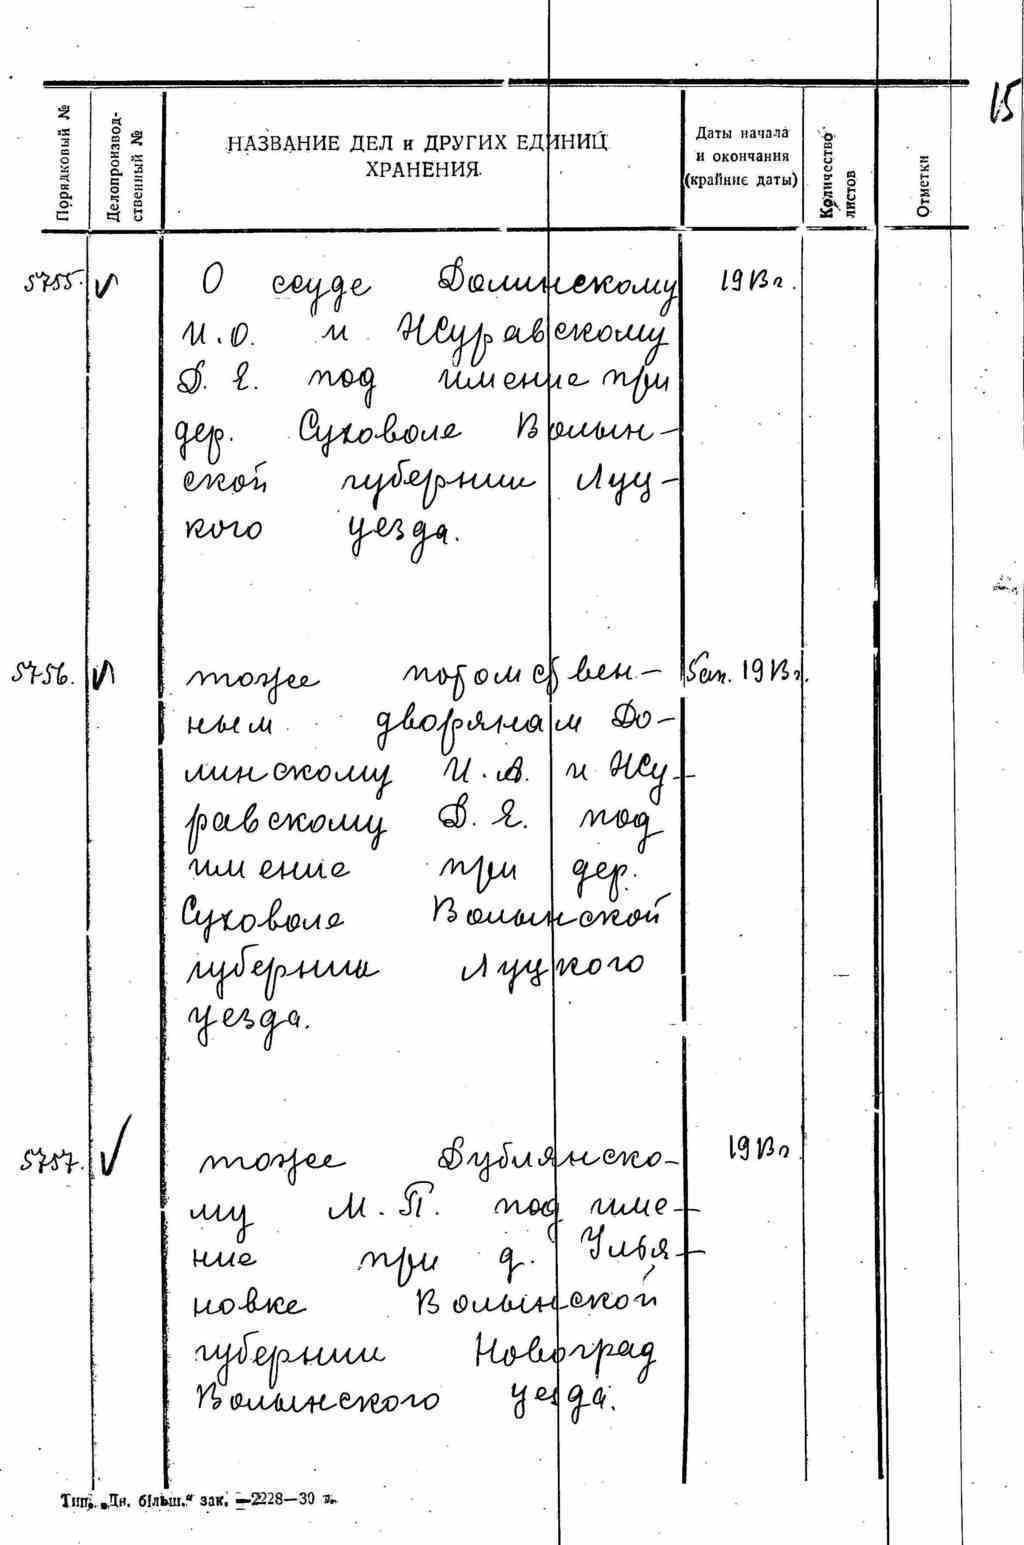 15
Порядковый №
Делопроизвод-
ственный №
НАЗВАНИЕ ДЕЛ и ДРУГИХ ЕДИНИЦ
ХРАНЕНИЯ.
Даты начала
и окончания
(крайние даты)
Количество
листов
Отметки
5755. О ссуде Долинскому 1913г.
И.О. и Журавскому
Д. Я. под имение при
дер. Суховоле Волын-
ской губернии Луц-
кого уезда.
5756. тоже потомствен- 1913г.
ным дворянам До-
линскому И.А. и Жу-
равскому Д. Я. под
имение при дер.
Суховоле Волынской
губернии Луцкого
уезда.
5757. тоже Дублянско- 1913г
му М. П. под име-
ние при д. Улья-
новке Волынской
губернии Новоград
Волынского уезда.
Тип. „Дн. більш." зак. —2228—30